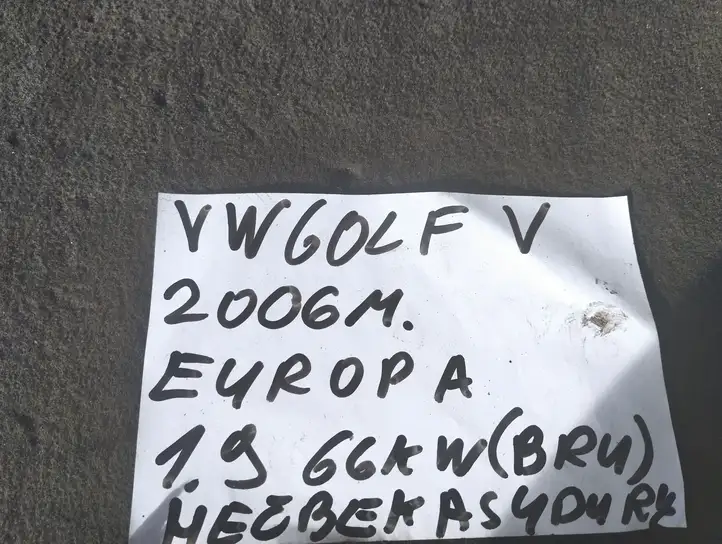 VW GOLF V
2006 M.
EUROPA
1.9 66KW (BRU)
HEČBEKAS